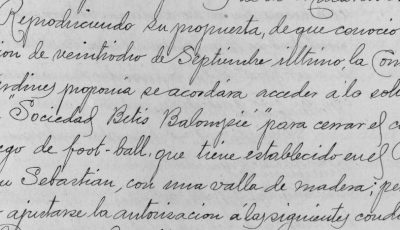 Reproduciendo su propuesta, de que conoció
ion de veintiocho de Septiembre último, la Com
ardines proponía se acordára acceder á la soli
"Sociedad Betis Balompié" para cerrar el c
ego de foot-ball, que tiene establecido en el
n Sebastián, con una valla de madera; pe
ajustarse la autorisacion á las siguientes condi